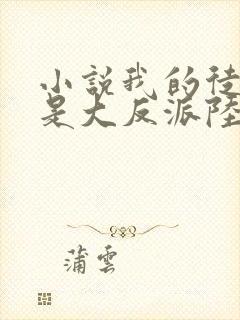 小說我的徒
是大反派陸
蒲雲